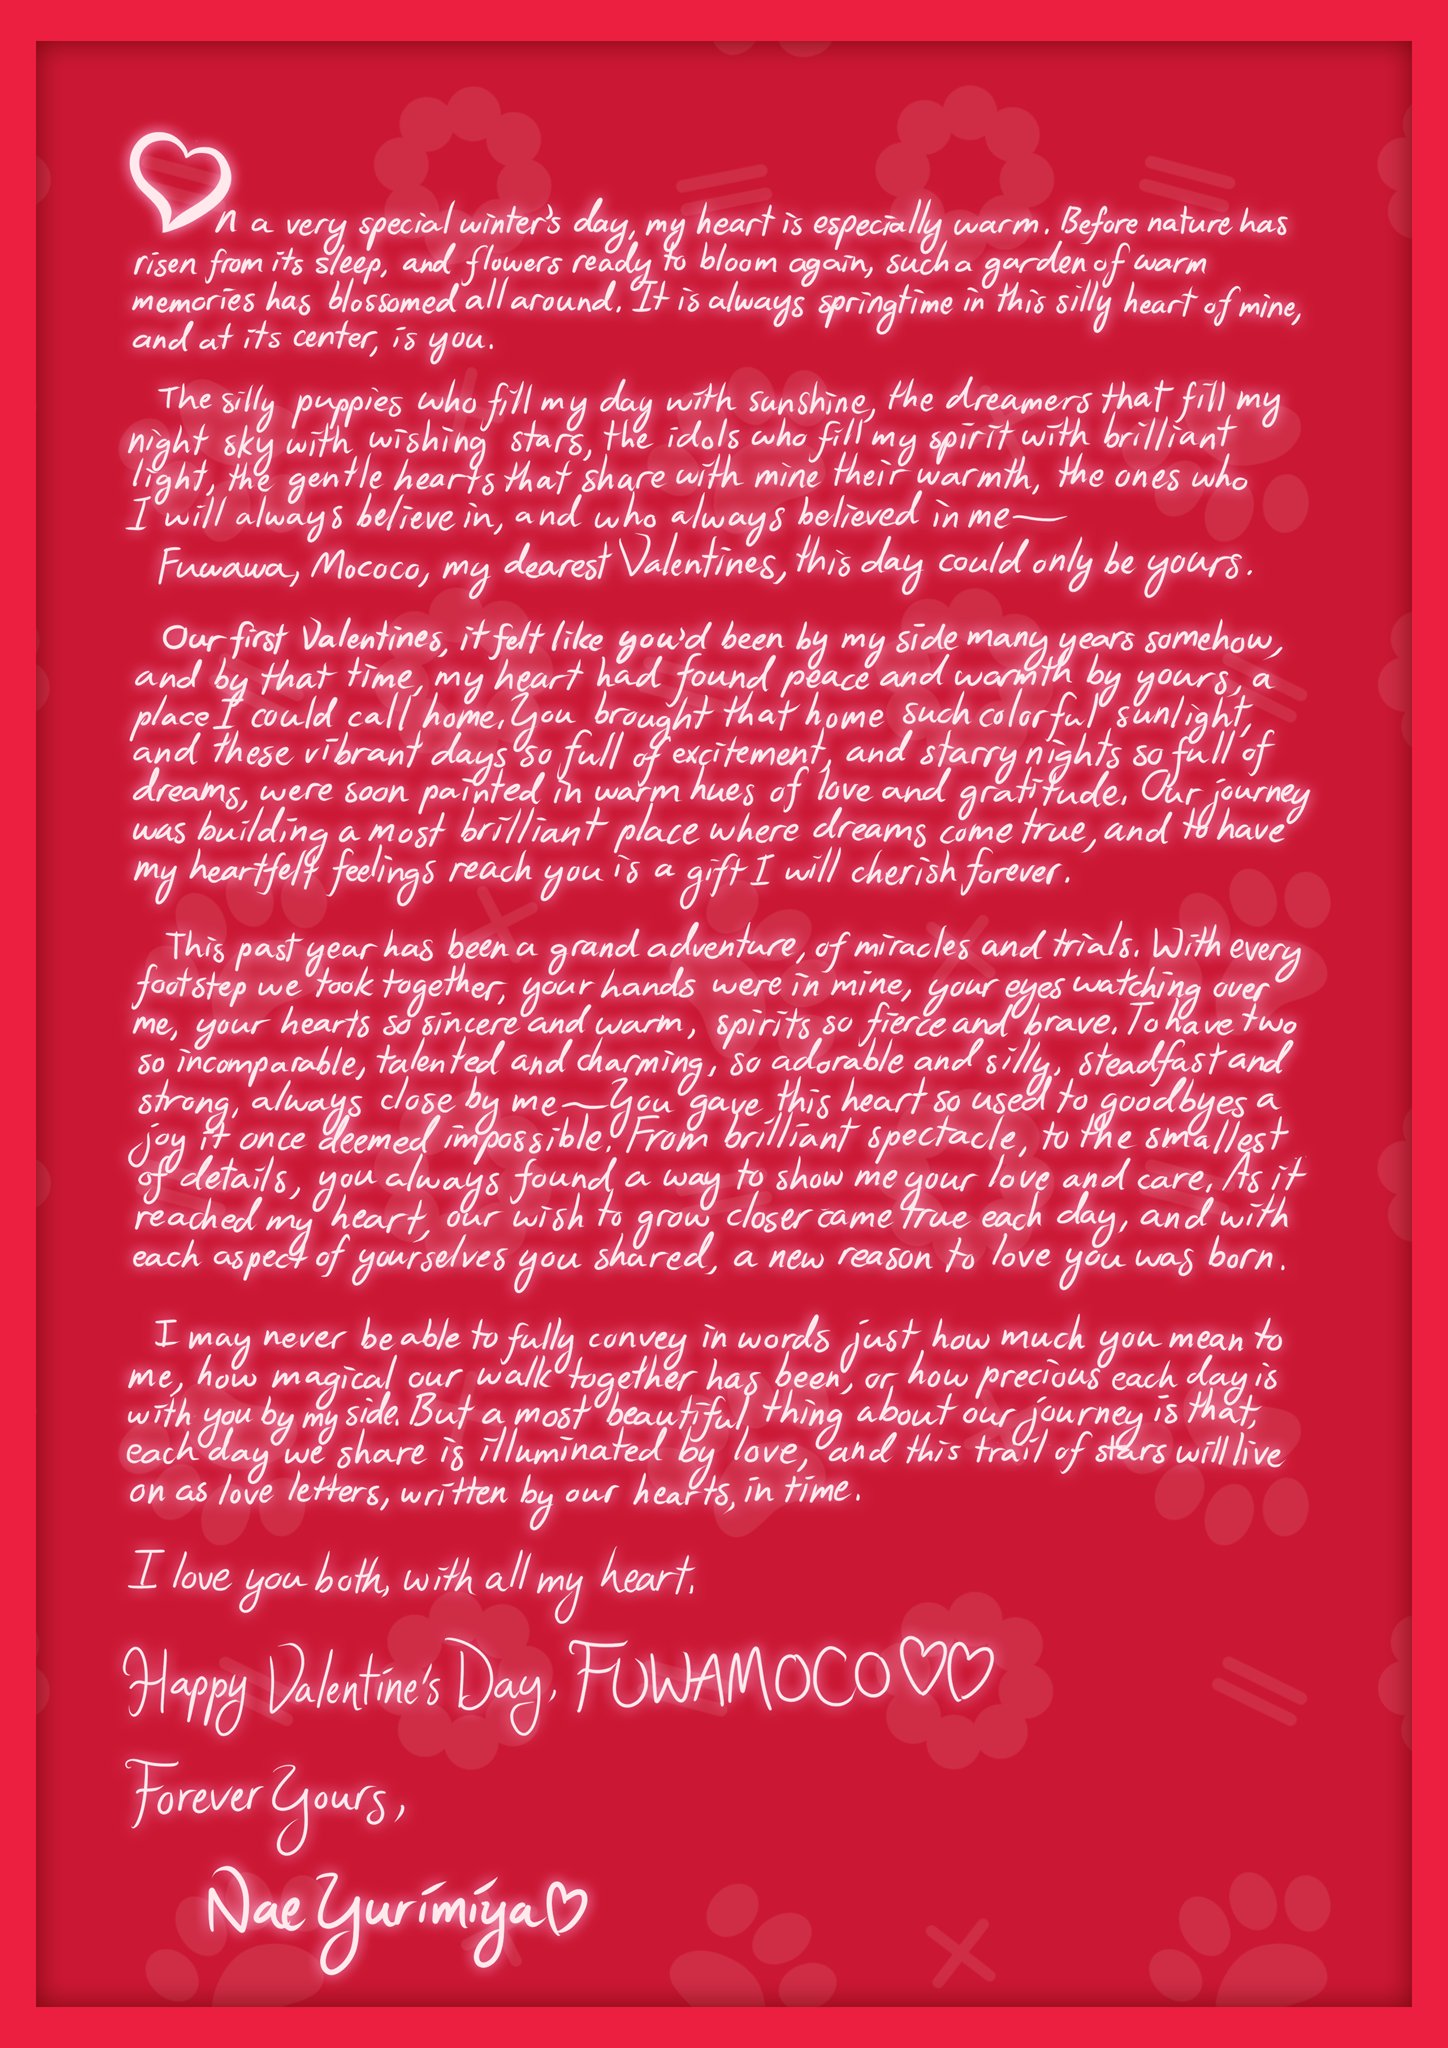 ♡n a very special winter's day, my heart is especially warm. Before nature has
risen from its sleep, and flowers ready to bloom again, such a garden of warm
memories has blossomed all around. It is always springtime in this silly heart of mine,
and at its center, is you.
The silly puppies who fill my day with sunshine, the dreamers that fill my
night sky with wishing stars, the idols who fill my spirit with brilliant
light, the gentle hearts that share with mine their warmth, the ones who
I will always believe in, and who always believed in me—
Fuwawa, Mococo, my dearest Valentines, this day could only be yours.
Our first Valentines, it felt like you'd been by my side many years somehow,
and by that time, my heart had found peace and warmth by yours, a
place I could call home. You brought that home such colorful sunlight,
and these vibrant days so full of excitement, and starry nights so full of
dreams, were soon painted in warm hues of love and gratitude. Our journey
was building a most brilliant place where dreams come true, and to have
my heartfelt feelings reach you is a gift I will cherish forever.
This past year has been a grand adventure, of miracles and trials. With every
footstep we took together, your hands were in mine, your eyes watching over
me, your hearts so sincere and warm, spirits so fierce and brave. To have two
so incomparable, talented and charming, so adorable and silly, steadfast and
strong, always close by me—You gave this heart so used to goodbyes a
joy it once deemed impossible. From brilliant spectacle, to the smallest
of details, you always found a way to show me your love and care. As it
reached my heart, our wish to grow closer came true each day, and with
each aspect of yourselves you shared, a new reason to love you was born.
I may never be able to fully convey in words just how much you mean to
me, how magical our walk together has been, or how precious each day is
with you by my side. But a most beautiful thing about our journey is that,
each day we share is illuminated by love, and this trail of stars will live
on as love letters, written by our hearts, in time.
I love you both, with all my heart.
Happy Valentine's Day, FUWAMOCO♡♡
Forever Yours,
Nae Yurimiya♡